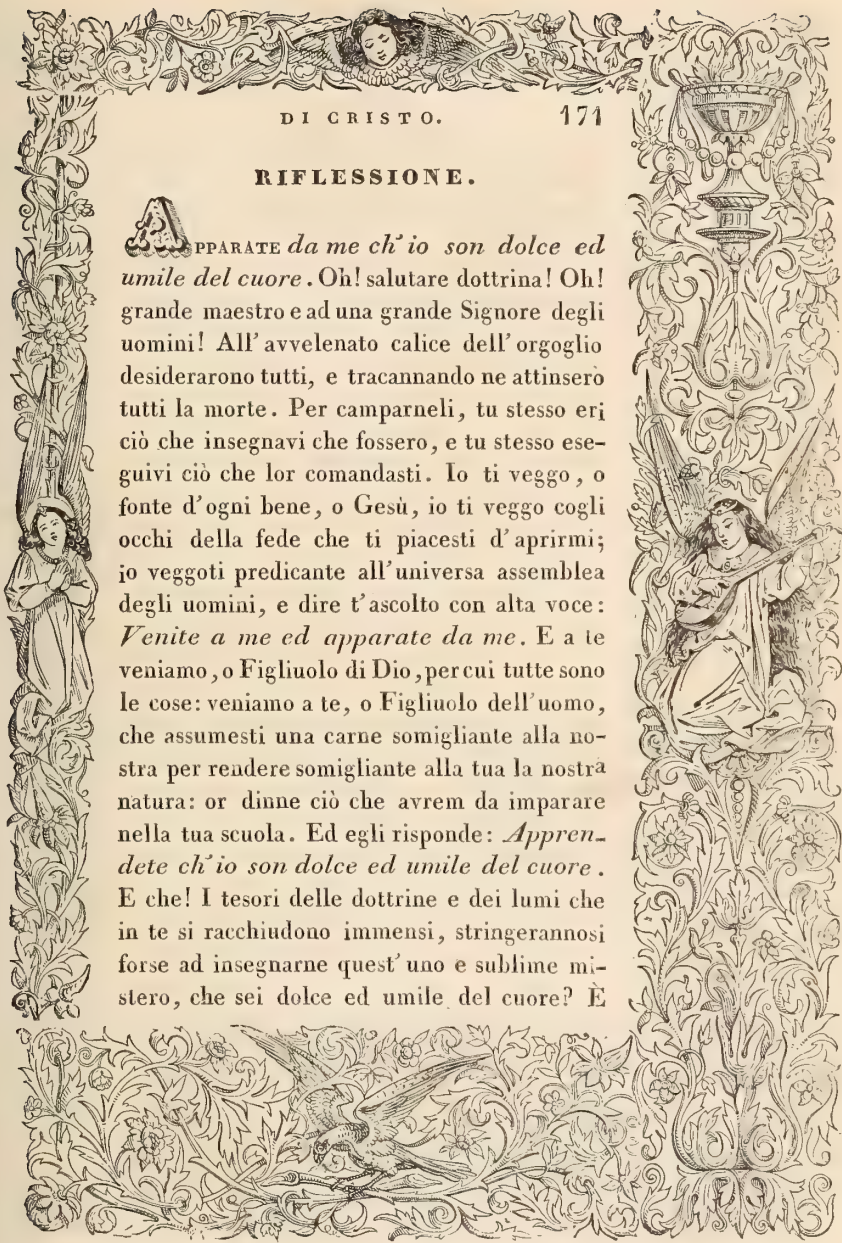 DI CRISTO. 171
RIFLESSIONE.
APPARATE da me ch' io son dolce ed
umile del cuore. Oh! salutare dottrina! Oh!
grande maestro e ad una grande Signore degli
uomini! All' avvelenato calice dell' orgoglio
desiderarono tutti, e tracannando ne attinsero
tutti la morte. Per camparneli, tu stesso eri
ciò che insegnavi che fossero, e tu stesso ese-
guivi ciò che lor comandasti. Io ti veggo, o
fonte d'ogni bene, o Gesù, io ti veggo cogli
occhi della fede che ti piacesti d'aprirmi;
io veggoti predicante all'universa assemblea
degli uomini, e dire t'ascolto con alta voce:
Venite a me ed apparate da me. E a te
veniamo, o Figliuolo di Dio, per cui tutte sono
le cose: veniamo a te, o Figliuolo dell'uomo,
che assumesti una carne somigliante alla no-
stra per rendere somigliante alla tua la nostra
natura: or dinne ciò che avrem da imparare
nella tua scuola. Ed egli risponde: Appren-
dete ch' io son dolce ed umile del cuore.
E che! I tesori delle dottrine e dei lumi che
in te si racchiudono immensi, stringerannosi
forse ad insegnarne quest' uno e sublime mi-
stero, che sei dolce ed umile del cuore? È